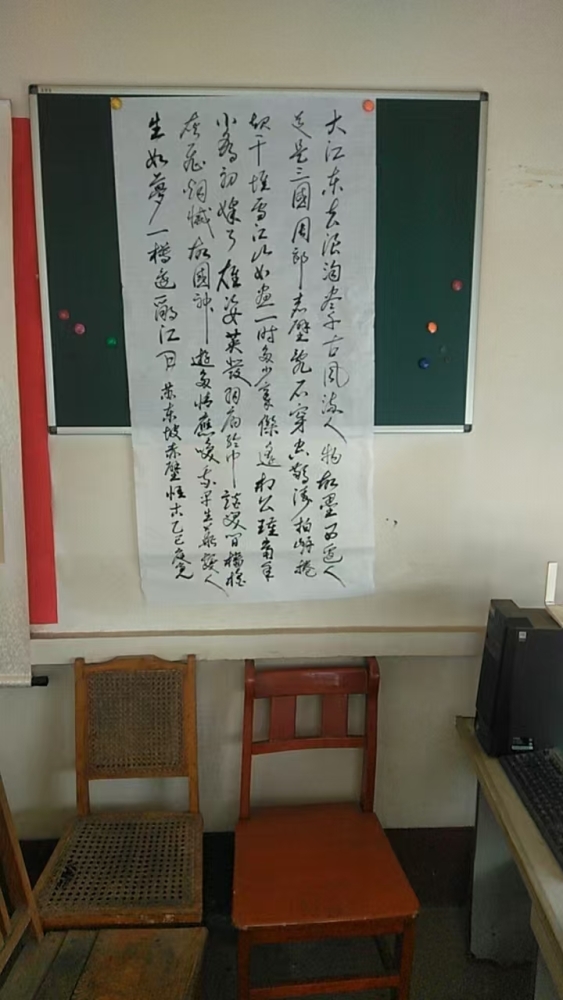 大江东去浪淘尽千古风流人物故垒西边人
道是三國周郎赤壁乱石穿空驚涛拍岸捲
起千堆雪江山如画一时多少豪傑遥想公瑾當年
小喬初嫁了雄姿英發羽扇纶巾談笑间檣櫓
灰飛烟滅故國神遊多情應笑我早生華髮人
生如夢一樽还酹江月 苏东坡赤壁怀古乙巳